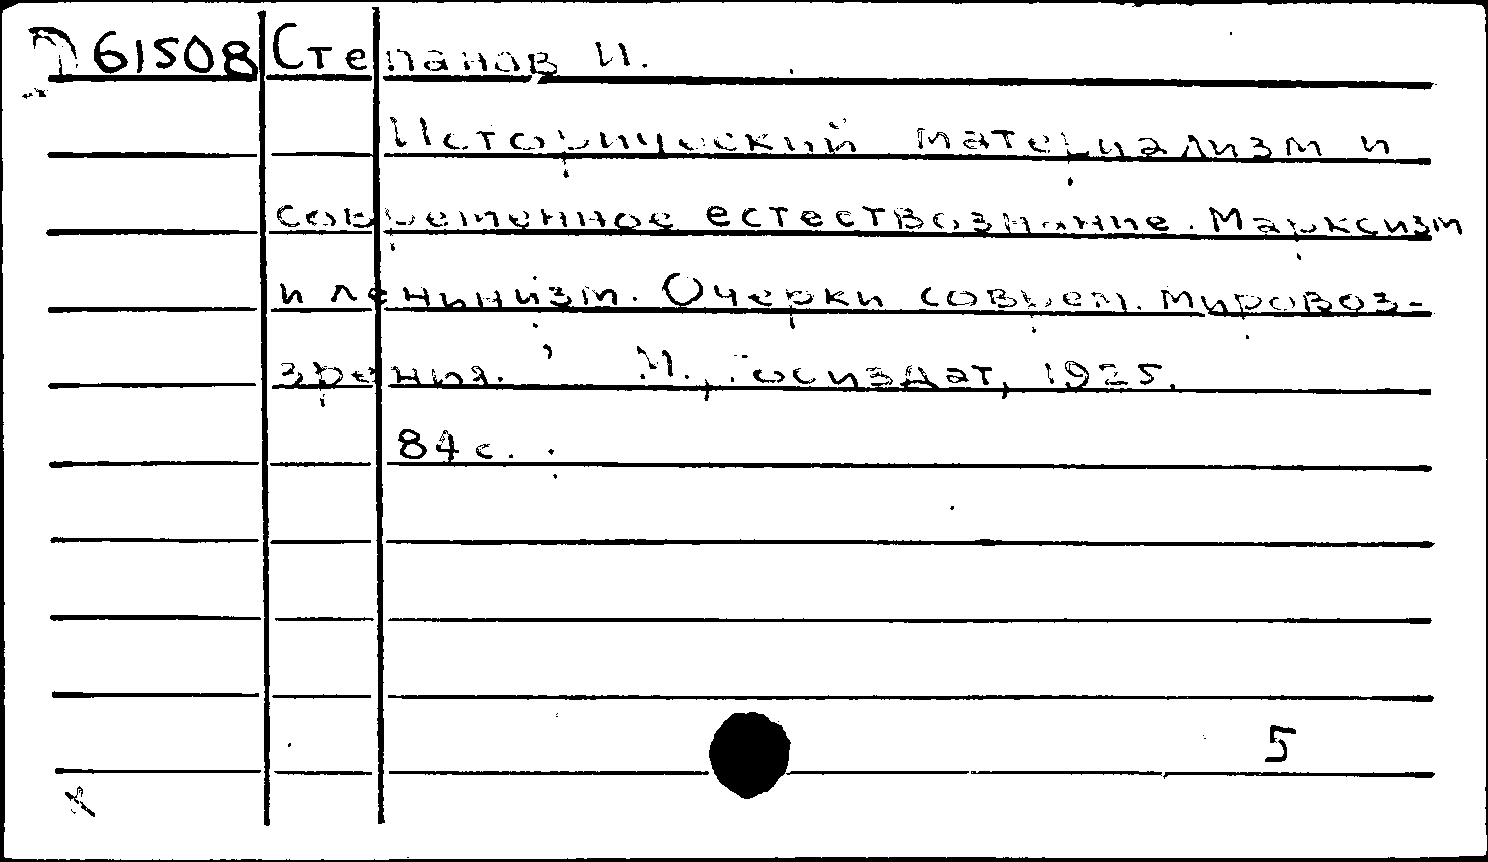 61508 Степанов И.
Исторический материализм и
современное естествознание. Марксизм
и ленинизм. Очерки соврем. мировоз-
зрения. М., Госиздат, 1925.
84 с.
5